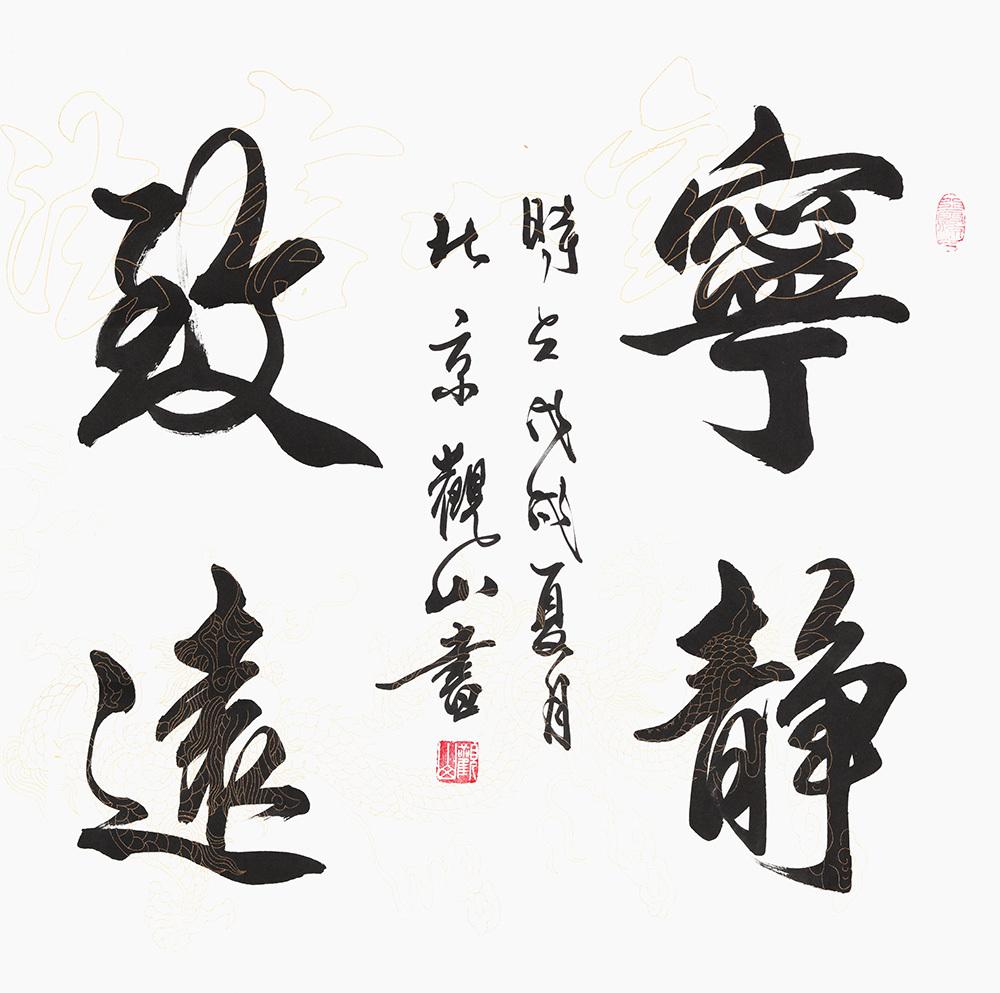 寧靜
致遠
時在戊戌夏月
北京觀山書
觀山